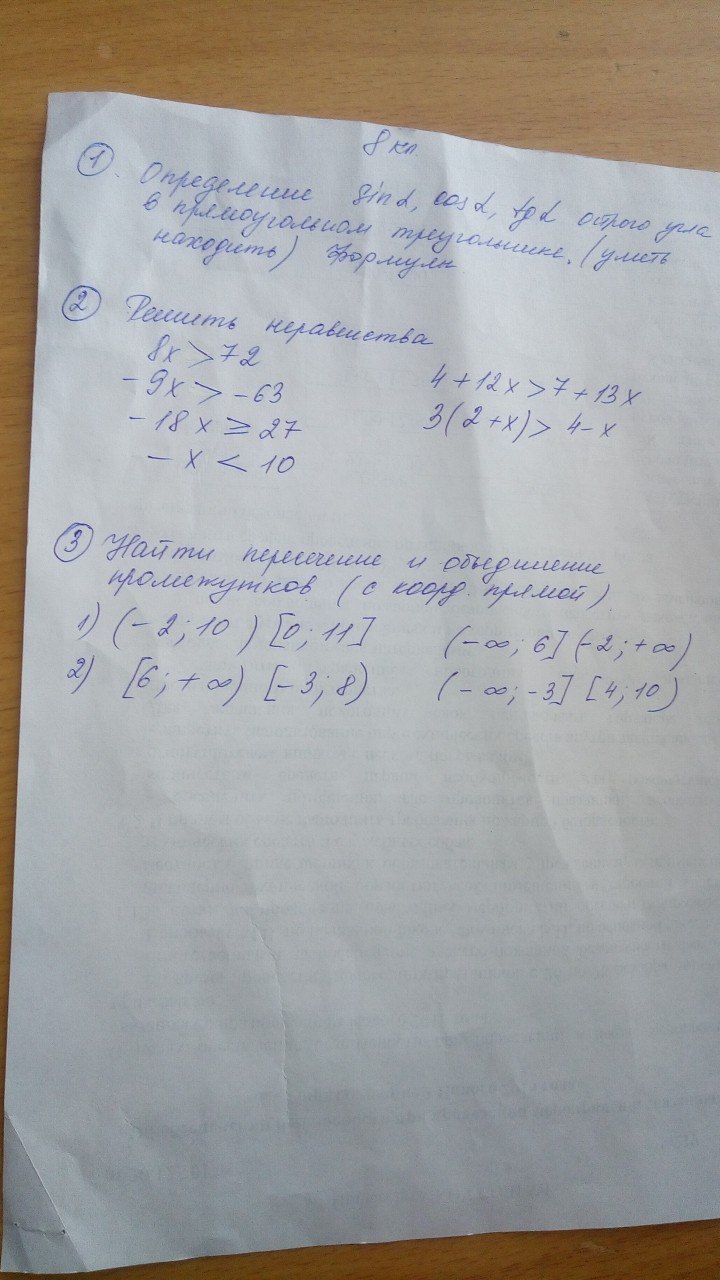 8 кл.
① Определение sin α, cos α, tg α острого угла
в прямоугольном треугольнике. (уметь
находить) Формулы
② Решить неравенства
8x > 72
-9x > -63
4 + 12x > 7 + 13x
-18x ≥ 27
3(2 + x) > 4 - x
- x < 10
③ Найти пересечение и объединение
промежутков (с коорд. прямой)
1) (-2; 10) [0; 11] (-∞; 6] (-2; +∞)
2) [6; +∞) [-3; 8) (-∞; -3] [4; 10)